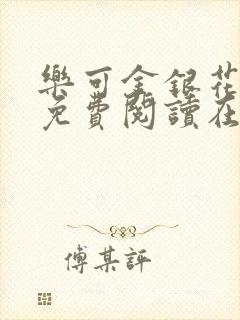 樂可金銀花
免費閱讀在
傅某評